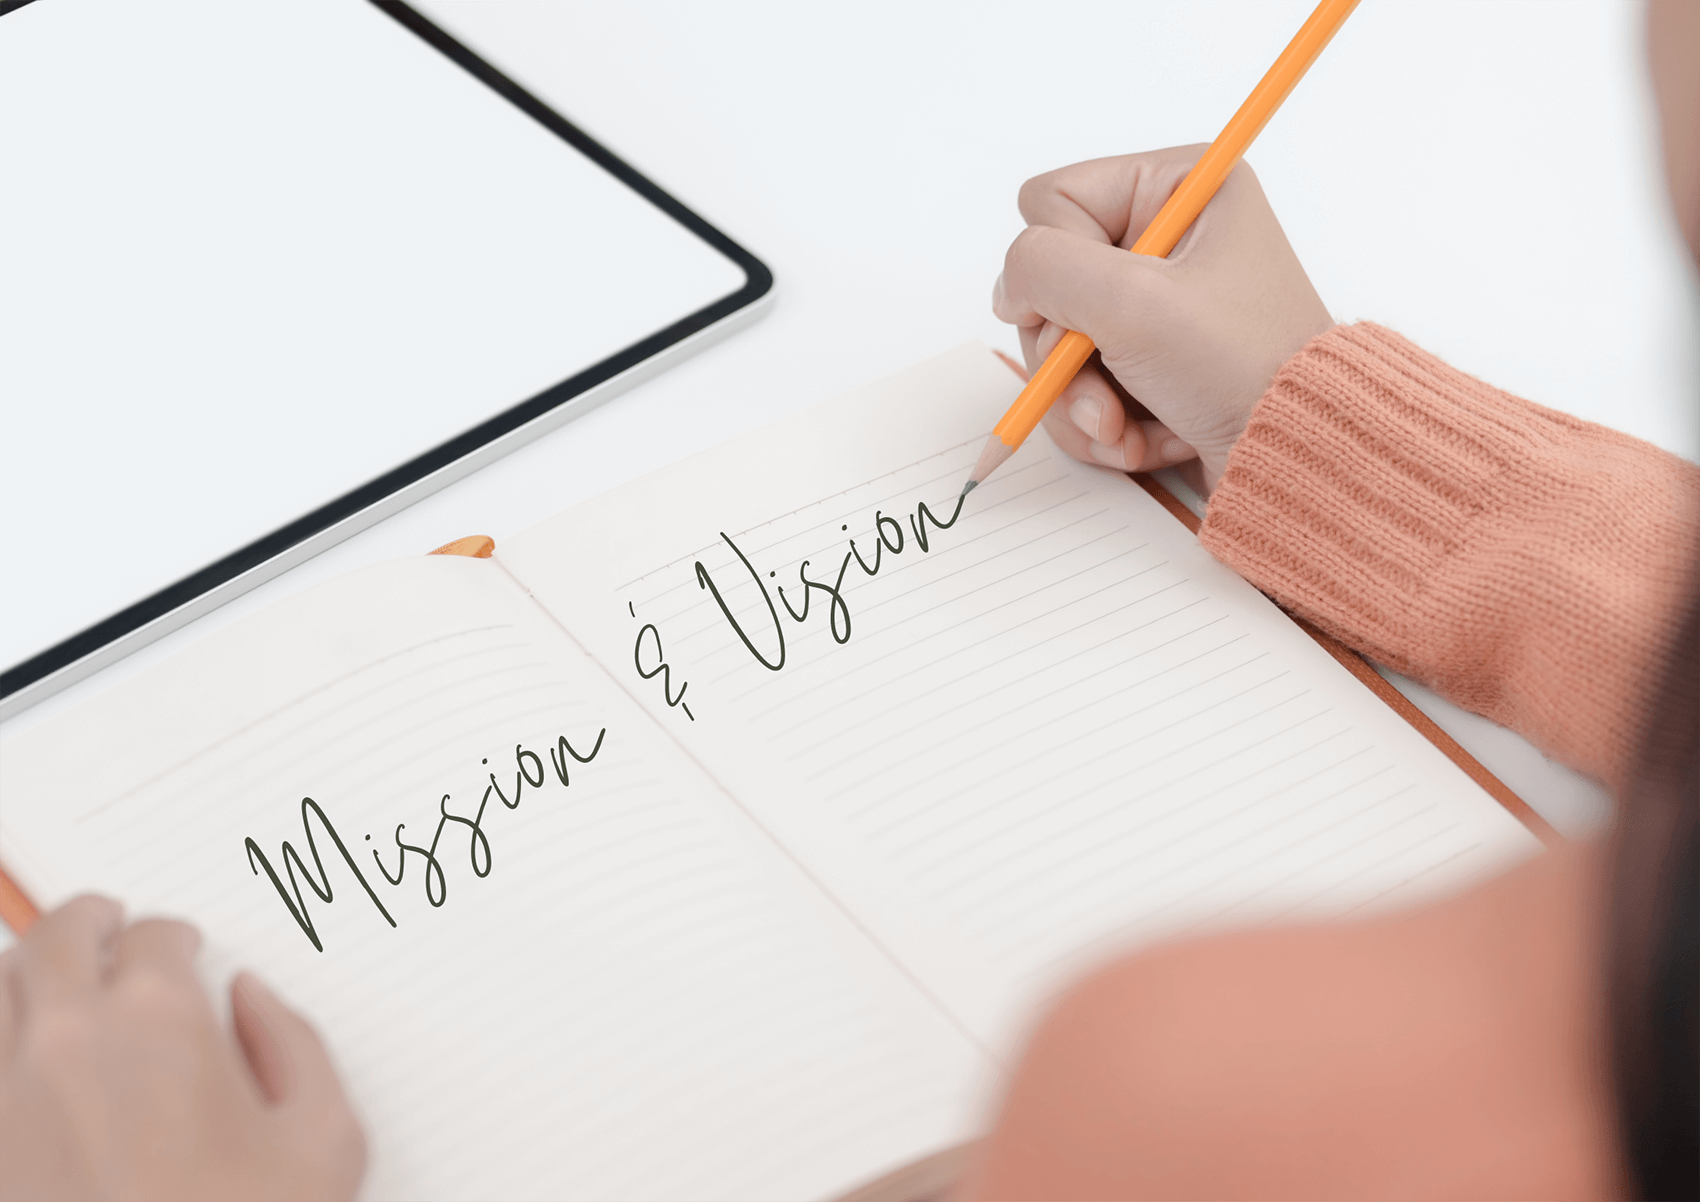 Mission & Vision